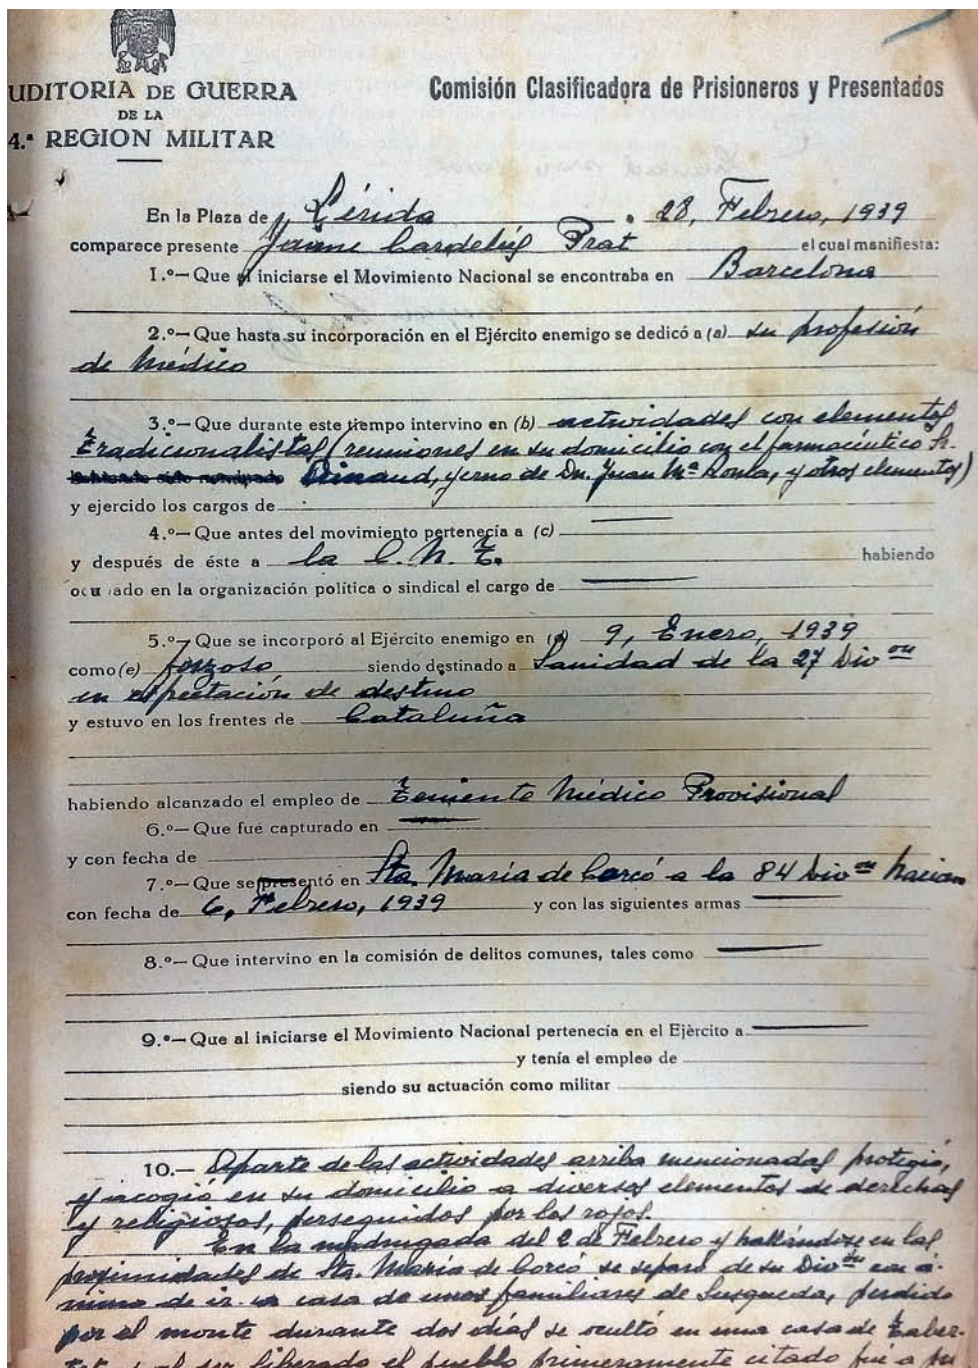 UDITORIA DE GUERRA
DE LA
4.ª REGION MILITAR
Comisión Clasificadora de Prisioneros y Presentados
En la Plaza de Lérida . 28, Febrero, 1939
comparece presente Jaime Cardelús Prat el cual manifiesta:
1.º— Que al iniciarse el Movimiento Nacional se encontraba en Barcelona
2.º— Que hasta su incorporación en el Ejército enemigo se dedicó a (a) su profesión
de Médico
3.º— Que durante este tiempo intervino en (b) actividades con elementos
tradicionalistas (reuniones en su domicilio con el farmacéutico Sr.
yerno de Dn. Juan Mª Roma, y otros elementos)
y ejercido los cargos de
4.º— Que antes del movimiento pertenecía a (c)
y después de éste a la C.N.T. habiendo
ocupado en la organización política o sindical el cargo de
5.º— Que se incorporó al Ejército enemigo en (d) 9, Enero, 1939
como (e) forzoso siendo destinado a Sanidad de la 27 Divon
en espectación de destino
y estuvo en los frentes de Cataluña
habiendo alcanzado el empleo de Teniente Médico Provisional
6.º— Que fué capturado en
y con fecha de
7.º— Que se presentó en Sta. María de Corcó a la 84 Divon Nacion
con fecha de 6, Febrero, 1939 y con las siguientes armas
8.º— Que intervino en la comisión de delitos comunes, tales como
9.º— Que al iniciarse el Movimiento Nacional pertenecía en el Ejèrcito a
y tenía el empleo de
siendo su actuación como militar
10.— Aparte de las actividades arriba mencionadas protegió,
y acogió en su domicilio a diversos elementos de derechas
y religiosos, perseguidos por los rojos.
En la madrugada del 2 de Febrero y hallándose en las
proximidades de Sta. María de Corcó se separó de su Divon con á-
nimo de ir a casa de unos familiares de Susqueda, perdido
por el monte durante dos días se ocultó en una casa de Taber-
tet, y al ser liberado el pueblo primeramente citado fué a su